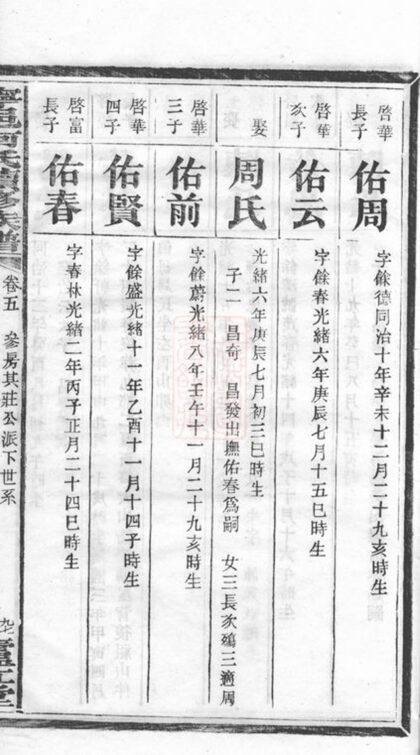 啓華長子
佑周
字餘德同治十年辛未十二月二十九亥時生
啓華次子
佑云
字餘春光緒六年庚辰七月十五巳時生
娶
周氏
光緒六年庚辰七月初三巳時生
子二 昌奇 昌發出撫佑春爲嗣 女三長次殤三適周
啓華三子
佑前
字餘蔚光緒八年壬午十一月二十九亥時生
啓華四子
佑賢
字餘盛光緒十一年乙酉十一月十四子時生
啓富長子
佑春
字春林光緒二年丙子正月二十四巳時生
寧邑何氏續修族譜
卷五
叅房其莊公派下世系
九七
廬江堂